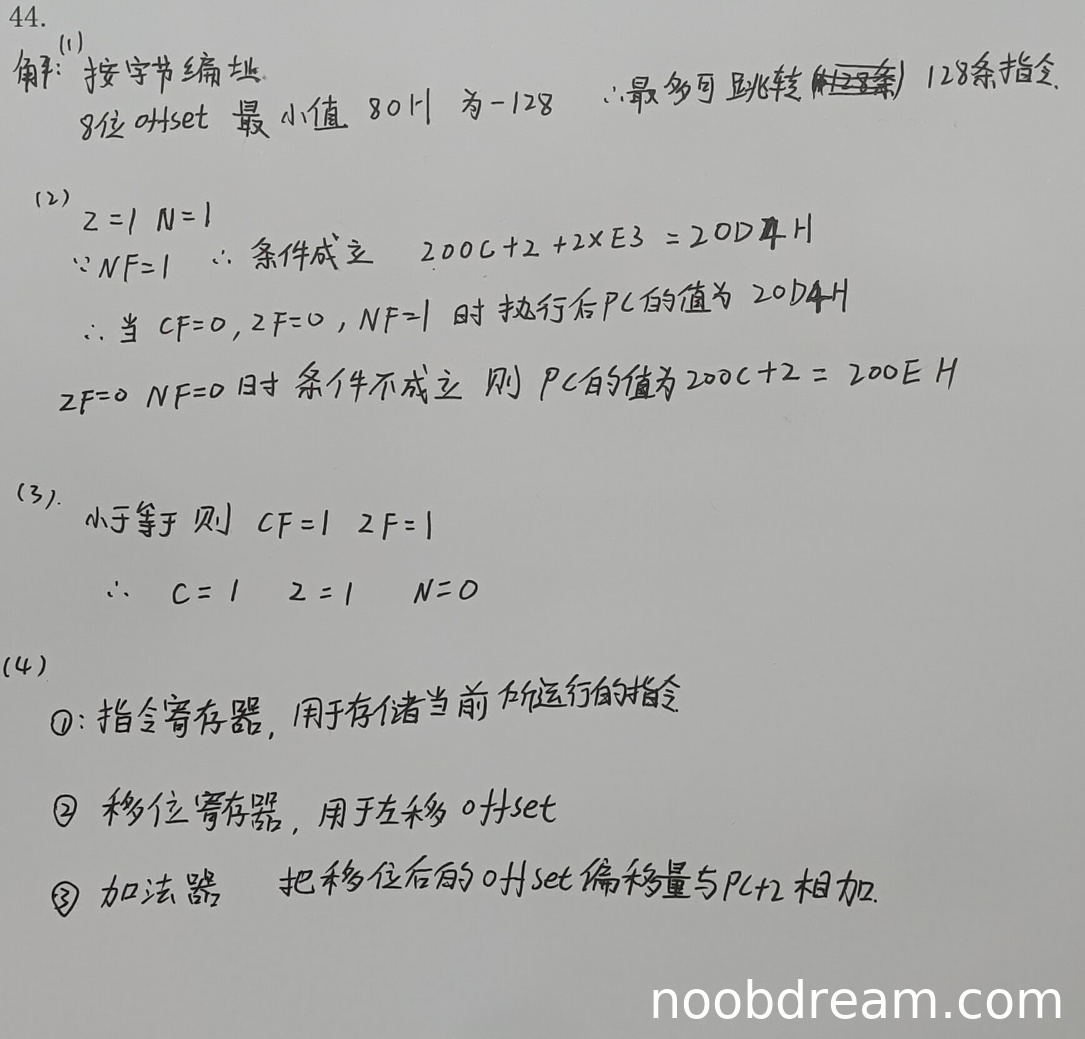 44.
解:(1) 按字节编址.
8位offset 最小值 80H 为-128 ∴最多可跳转 128条指令.
(2) Z=1 N=1
∵NF=1 ∴条件成立 200C+2+2×E3=20D4H
∴当 CF=0,ZF=0,NF=1 时执行后PC的值为 20D4H
ZF=0 NF=0时 条件不成立 则 PC的值为200C+2=200EH
(3). 小于等于 则 CF=1 ZF=1
∴ C=1 Z=1 N=0
(4)
①:指令寄存器,用于存储当前所运行的指令
② 移位寄存器,用于左移offset
③ 加法器 把移位后的offset偏移量与PC+2相加.
noobdream.com